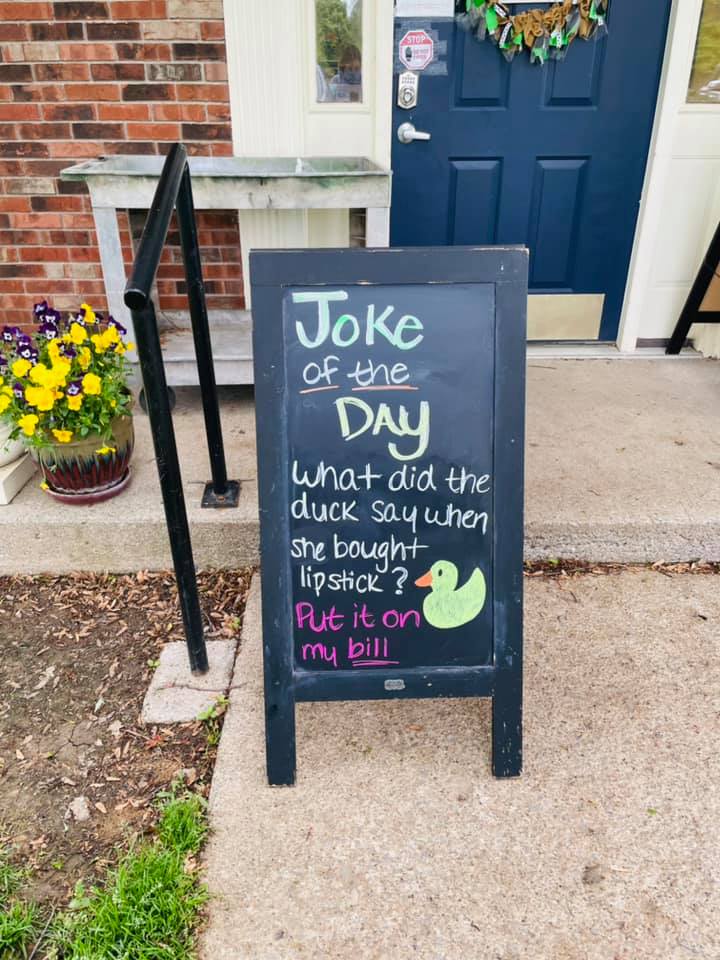 STOP
Joke
of the
DAY
What did the
duck say when
she bought
lipstick?
Put it on
my bill